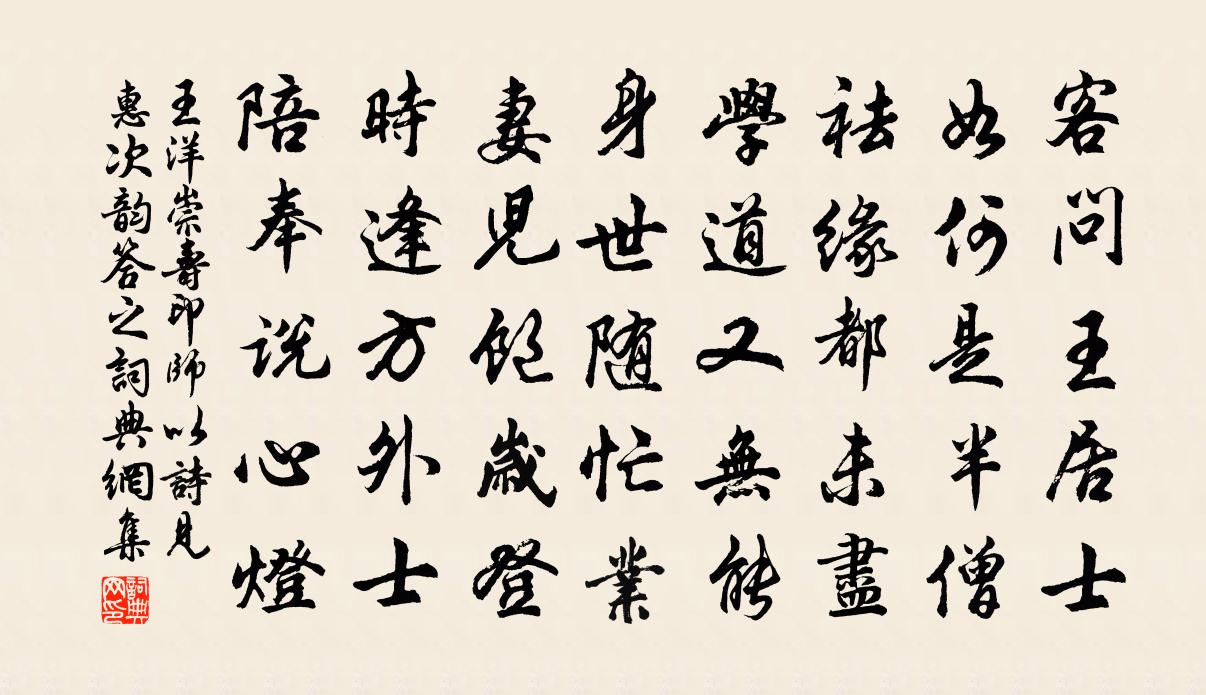 客問王居士
如何是半僧
祛緣都未盡
學道又無能
身世随忙業
妻児飽歲登
時逢方外士
陪奉説心燈
王洋崇壽印師以詩見
惠次韵答之詞典網集
詞典網印